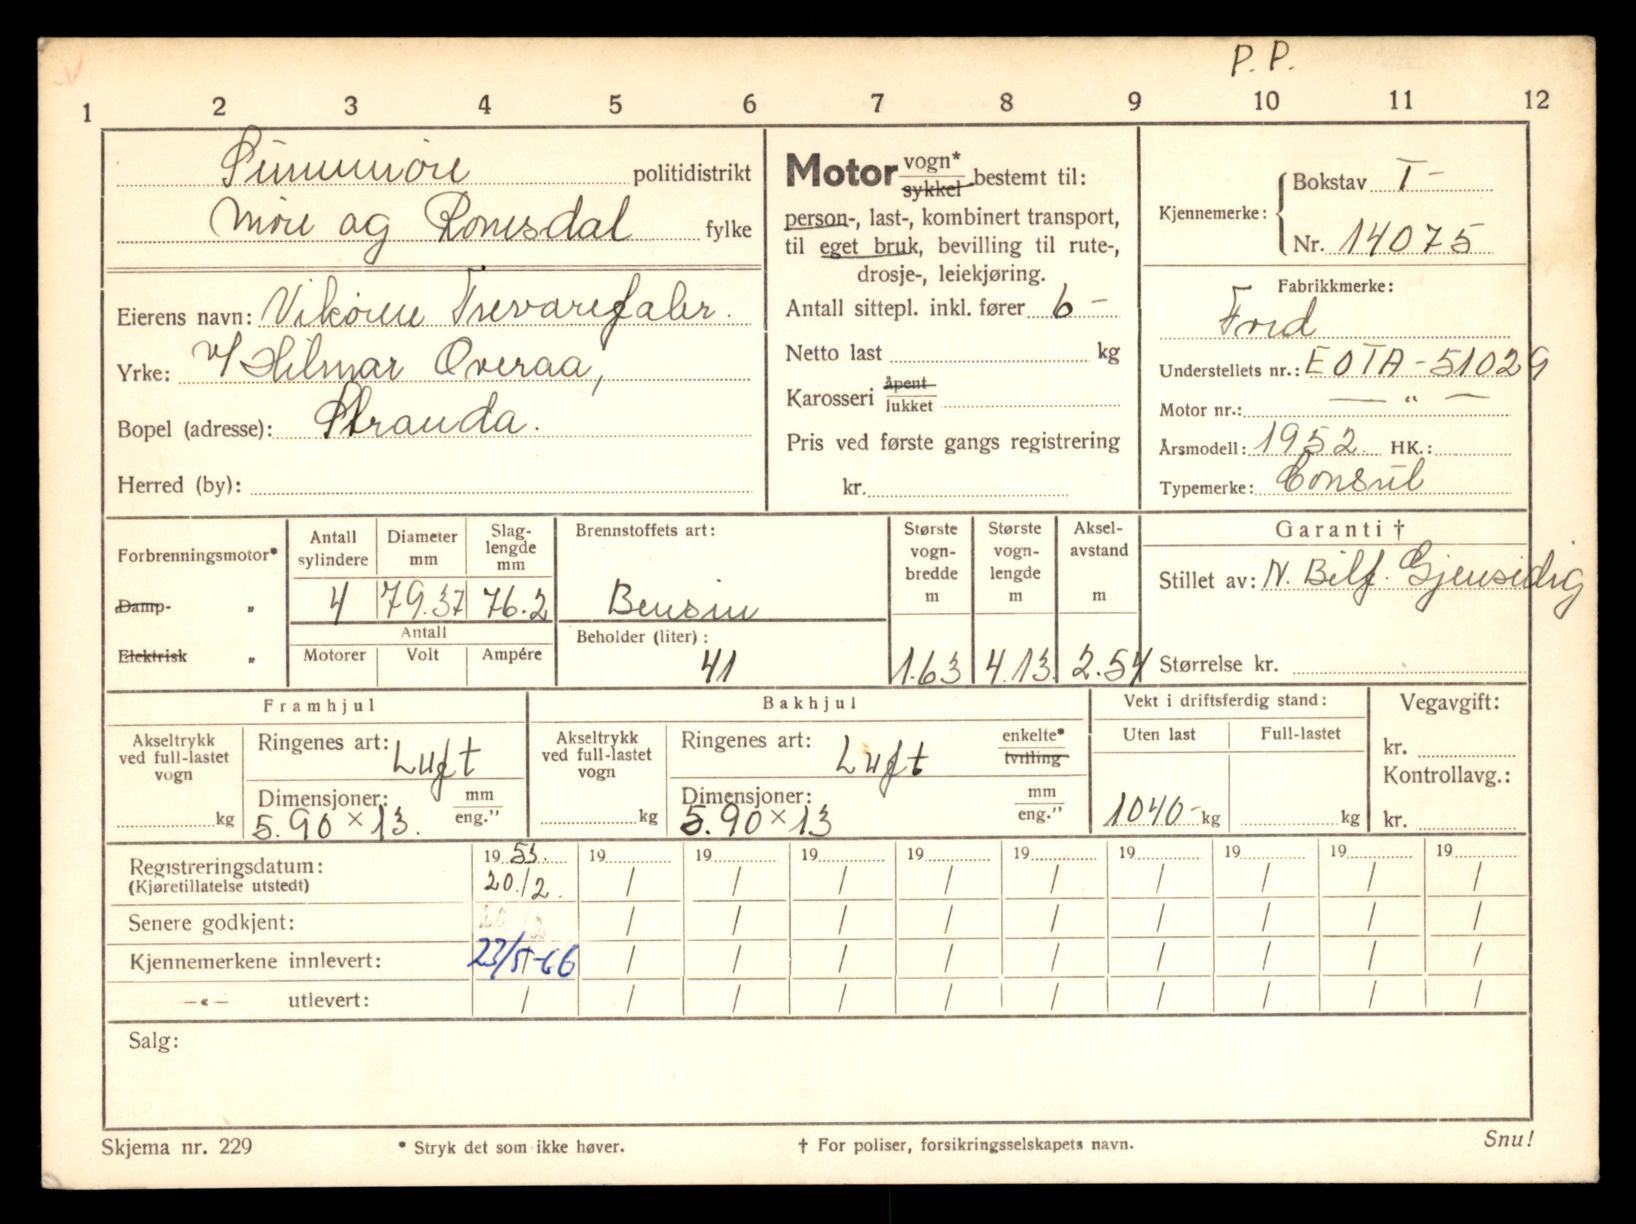 P. P.
1 2 3 4 5 6 7 8 9 10 11 12
Sunnmøre politidistrikt
Møre og Romsdal fylke
Eierens navn: Vikøren Trevarefabr.
Yrke: v/ Hilmar Overaa,
Bopel (adresse): Stranda.
Herred (by):
Motor vogn* / sykkel bestemt til:
person-, last-, kombinert transport,
til eget bruk, bevilling til rute-,
drosje-, leiekjøring.
Antall sittepl. inkl. fører 6 –
Netto last kg
Karosseri åpent / lukket
Pris ved første gangs registrering
kr.
Kjennemerke: Bokstav T-
Nr. 14075
Fabrikkmerke:
Ford
Understellets nr.: EOTA-51029
Motor nr.: — " —
Årsmodell: 1952 HK.:
Typemerke: Consul
Forbrenningsmotor*
Damp- "
Elektrisk "
Antall sylindere
4
Diameter mm
79.37
Slag-lengde mm
76.2
Antall
Motorer Volt Ampére
Brennstoffets art:
Bensin
Beholder (liter):
41
Største vogn-bredde m
1.63
Største vogn-lengde m
4.13
Aksel-avstand m
2.54
Garanti †
Stillet av: N. Bilf. Gjensidig
Størrelse kr.
Framhjul
Akseltrykk ved full-lastet vogn
kg
Ringenes art: Luft
Dimensjoner: mm / eng."
5.90 × 13.
Bakhjul
Akseltrykk ved full-lastet vogn
kg
Ringenes art: Luft enkelte* / tvilling
Dimensjoner: mm / eng."
5.90 × 13
Vekt i driftsferdig stand:
Uten last Full-lastet
1040- kg kg
Vegavgift:
kr.
Kontrollavg.:
kr.
Registreringsdatum: 19 53. 19 19 19 19 19 19 19 19 19
(Kjøretillatelse utstedt) 20./2. / / / / / / / / /
Senere godkjent: 20 /2 / / / / / / / / /
Kjennemerkene innlevert: 23/5-66 / / / / / / / / /
—«— utlevert: / / / / / / / / / /
Salg:
Skjema nr. 229 * Stryk det som ikke høver. † For poliser, forsikringsselskapets navn. Snu!